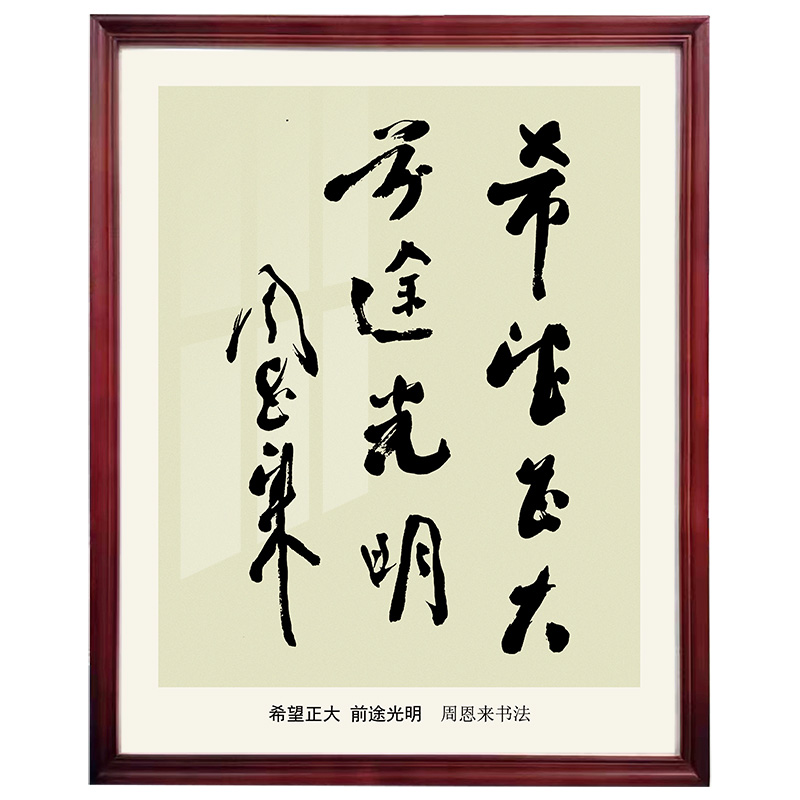 希望正大
前途光明
周恩来
希望正大 前途光明 周恩来书法